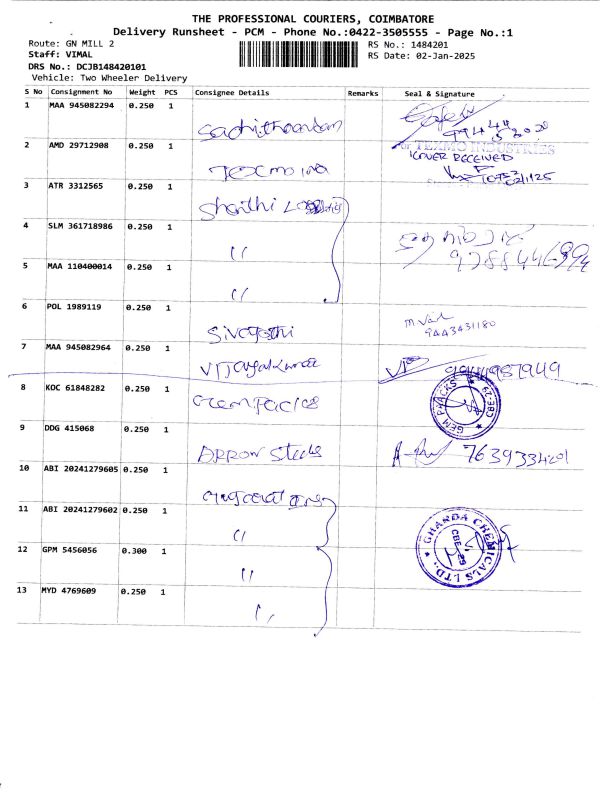 THE PROFESSIONAL COURIERS, COIMBATORE
Delivery Runsheet - PCM - Phone No.:0422-3505555 - Page No.:1
Route: GN MILL 2
RS No.: 1484201
Staff: VIMAL
RS Date: 02-Jan-2025
DRS No.: DCJB148420101
Vehicle: Two Wheeler Delivery
S No Consignment No Weight PCS Consignee Details Remarks Seal & Signature
1 MAA 945082294 0.250 1
2 AMD 29712908 0.250 1 for TEXMO INDUSTRIES
1COVER RECEIVED
3 ATR 3312565 0.250 1 Shanthi
4 SLM 361718986 0.250 1 "
5 MAA 110400014 0.250 1 "
6 POL 1989119 0.250 1 9443431180
7 MAA 945082964 0.250 1 Vijayakumar
8 KOC 61848282 0.250 1 GEM PHACKS CBE-29
9 DDG 415068 0.250 1 ARROW Steels 7639334201
10 ABI 20241279605 0.250 1
11 ABI 20241279602 0.250 1 " GHARDA CHEMICALS LTD., CBE-29
12 GPM 5456056 0.300 1 "
13 MYD 4769609 0.250 1 "